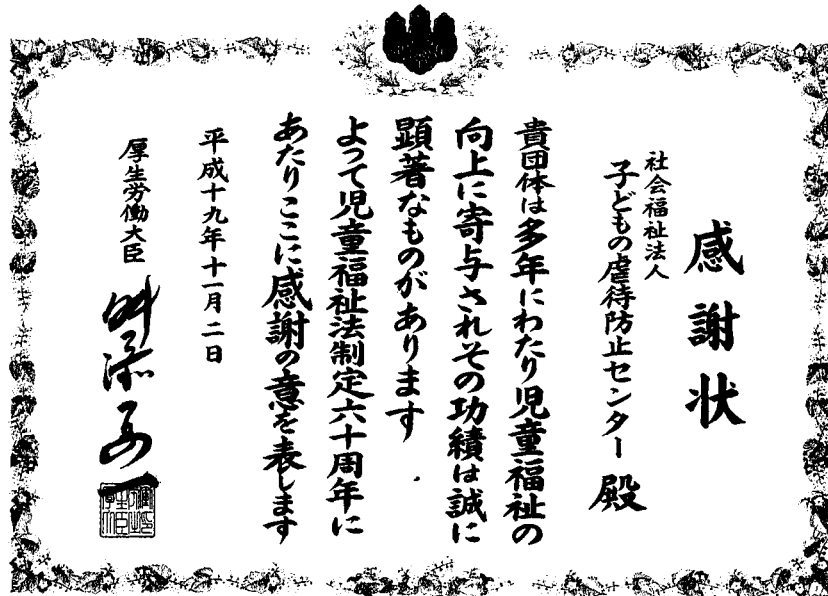 感謝状
社会福祉法人
子どもの虐待防止センター 殿
貴団体は多年にわたり児童福祉の
向上に寄与されその功績は誠に
顕著なものがあります
よって児童福祉法制定六十周年に
あたりここに感謝の意を表します
平成十九年十一月二日
厚生労働大臣 舛添要一